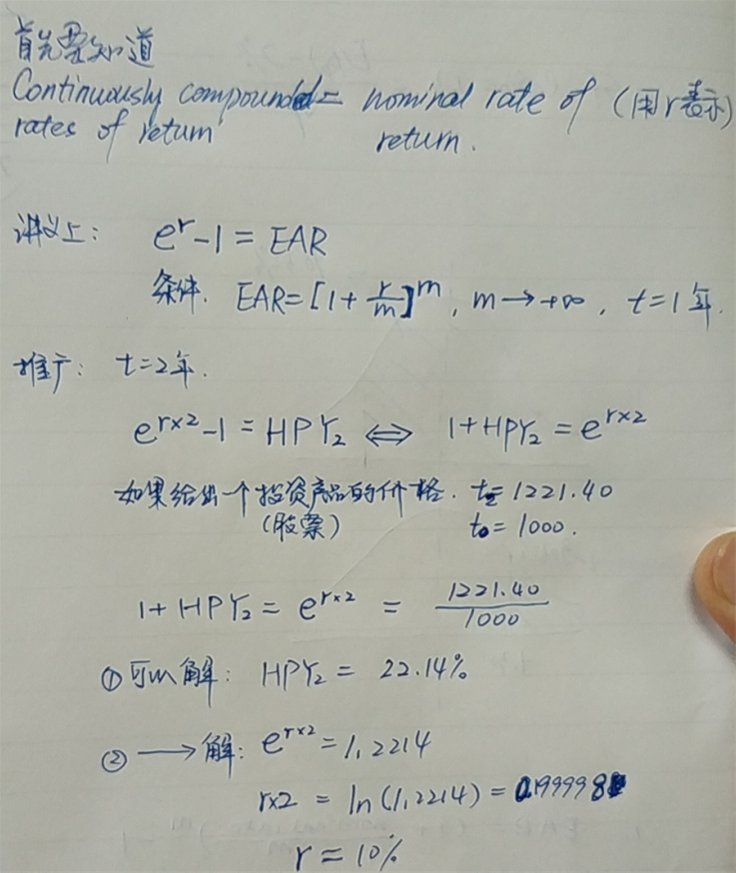 首先要知道
Continuously compounded = nominal rate of (用r表示)
rates of return return.
讲义上: e^r - 1 = EAR
条件. EAR = [1 + r/m]^m, m → +∞, t = 1年.
推广: t = 2年.
e^{r×2} - 1 = HPY₂ ⟺ 1 + HPY₂ = e^{r×2}
如果给出一个投资产品的价格. t₂ = 1221.40
(股票) t₀ = 1000.
1 + HPY₂ = e^{r×2} = 1221.40/1000
① 可以解: HPY₂ = 22.14%
② → 解: e^{r×2} = 1.2214
r×2 = ln(1.2214) = 0.199998
r = 10%